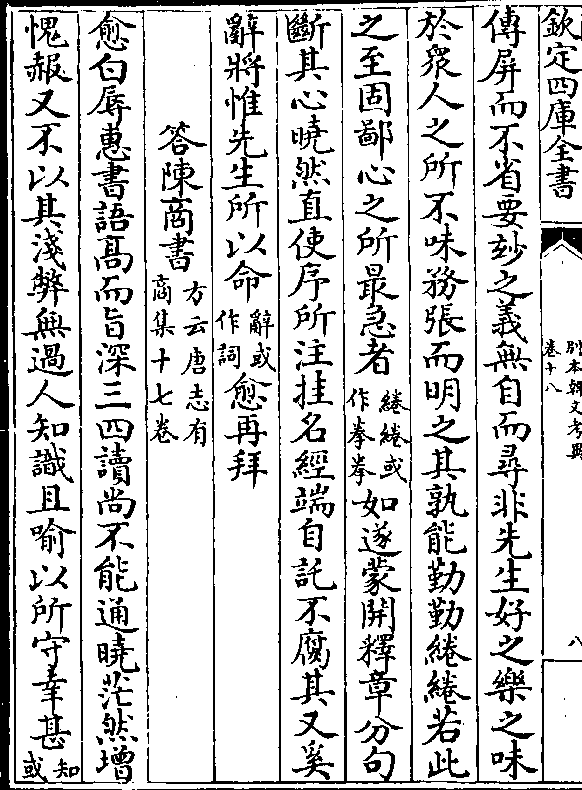 欽定四庫全書
別本韓文考異
卷十八
八
傳屏而不省要妙之義無自而尋非先生好之樂之味
於衆人之所不味務張而明之其孰能勤勤綣綣若此
之至固鄙心之所最急者綣綣或作拳拳如遂蒙開釋章分句
斷其心曉然直使序所注挂名經端自託不腐其又奚
辭將惟先生所以命辭或作詞愈再拜
答陳商書方云唐志有商集十七卷
愈白辱惠書語高而旨深三四讀尚不能通曉茫然增
愧赧又不以其淺弊無過人知識且喻以所守幸甚知或